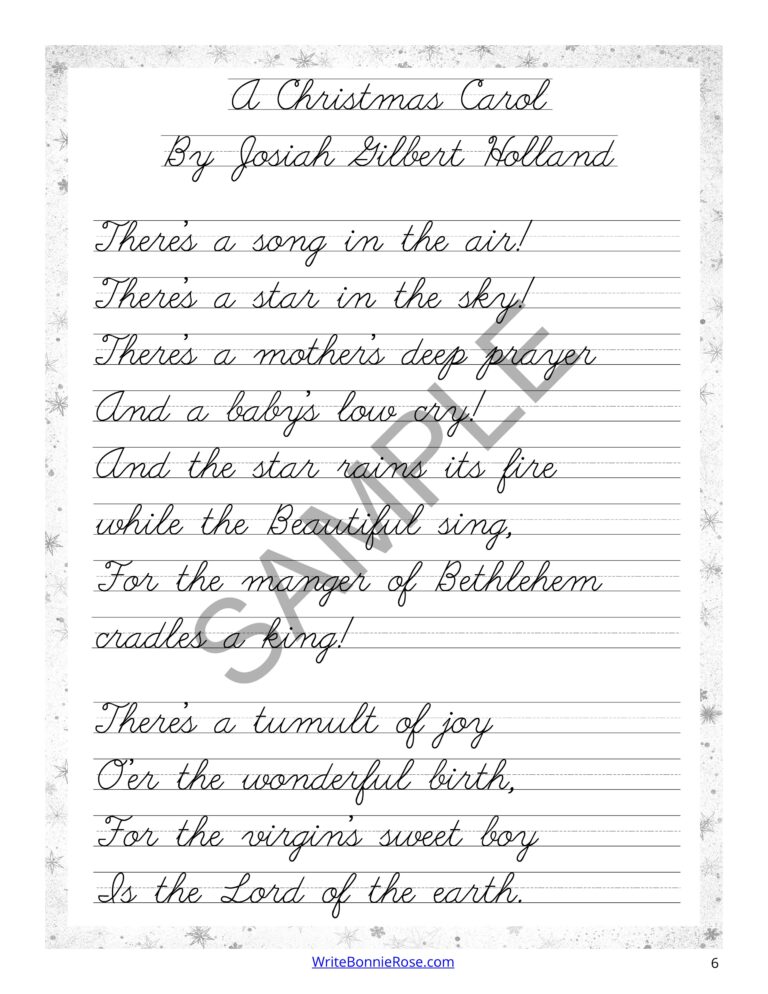 A Christmas Carol
By Josiah Gilbert Holland
There's a song in the air!
There's a star in the sky!
There's a mother's deep prayer
And a baby's low cry!
And the star rains its fire
while the Beautiful sing,
For the manger of Bethlehem
cradles a king!
There's a tumult of joy
O'er the wonderful birth,
For the virgin's sweet boy
Is the Lord of the earth.
SAMPLE
WriteBonnieRose.com
6